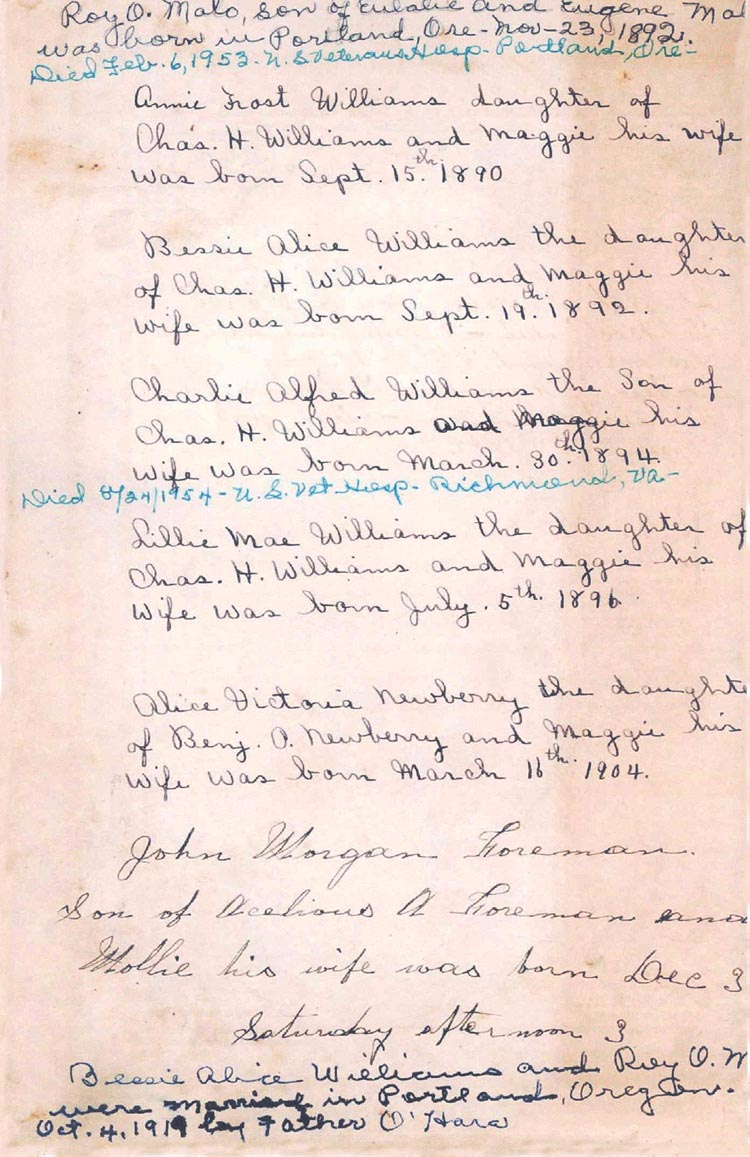 Roy O. Malo, son of Eulalie and Eugene Mal
was born in Portland, Ore - Nov - 23, 1892.
Died Feb. 6, 1953 - U.S. Veterans Hosp - Portland, Ore -
Annie Frost Williams daughter of
Chas. H. Williams and Maggie his wife
was born Sept. 15th. 1890
Bessie Alice Williams the daughter
of Chas. H. Williams and Maggie his
wife was born Sept. 19th. 1892.
Charlie Alfred Williams the Son of
Chas. H. Williams and Maggie his
wife was born March. 30th. 1894.
Died 8/24/1954 - U.S. Vet - Hosp - Richmond, Va -
Lillie Mae Williams the daughter of
Chas. H. Williams and Maggie his
Wife was born July. 5th. 1896.
Alice Victoria Newberry the daughte
of Benj. O. Newberry and Maggie his
wife was born March 16th. 1904.
John Morgan Foreman.
Son of Acelious A Foreman and
Mollie his wife was born Dec 3
Saturday afternoon 3
Bessie Alice Williams and Roy O. M
were married in Portland, Oregon.
Oct. 4, 1919 by Father O'Hara